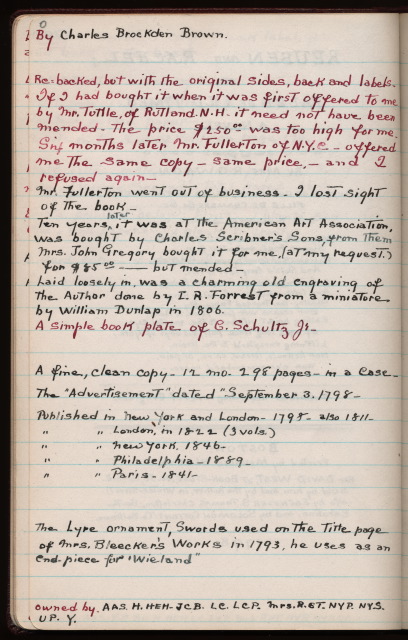 By Charles Brockden Brown.
Re-backed, but with the original sides, back and labels.
If I had bought it when it was first offered to me
by Mr. Tuttle, of Rutland. N.H. it need not have been
mended - The price $250.00 was too high for me.
Six months later Mr. Fullerton of N.Y.C. - offered
me the same copy - same price, - and I
refused again -
Mr. Fullerton went out of business - I lost sight
of the book -
Ten years later, it was at the American Art Association,
was bought by Charles Scribner's Sons, from them
Mrs. John Gregory bought it for me. (at my request.)
for $85.00 - but mended -
Laid loosely in, was a charming old engraving of
the Author done by I. R. Forrest from a miniature
by William Dunlap in 1806.
A simple book plate of C. Schultz Jr -
A fine, clean copy - 12 mo. 298 pages - in a Case -
The "Advertisement" dated "September 3. 1798 -
Published in New York and London - 1798 - also 1811 -
" " London, in 1822 (3 vols)
" " New York, 1846 -
" " Philadelphia - 1889 -
" " Paris - 1841 -
The Lyre ornament, Swords used on the Title page
of Mrs. Bleecker's Works in 1793, he uses as an
end-piece for "Wieland"
owned by. AAS. H. HEH - JCB. LC. LCP. Mrs. R. GT. NYP. NYS.
UP. Y.